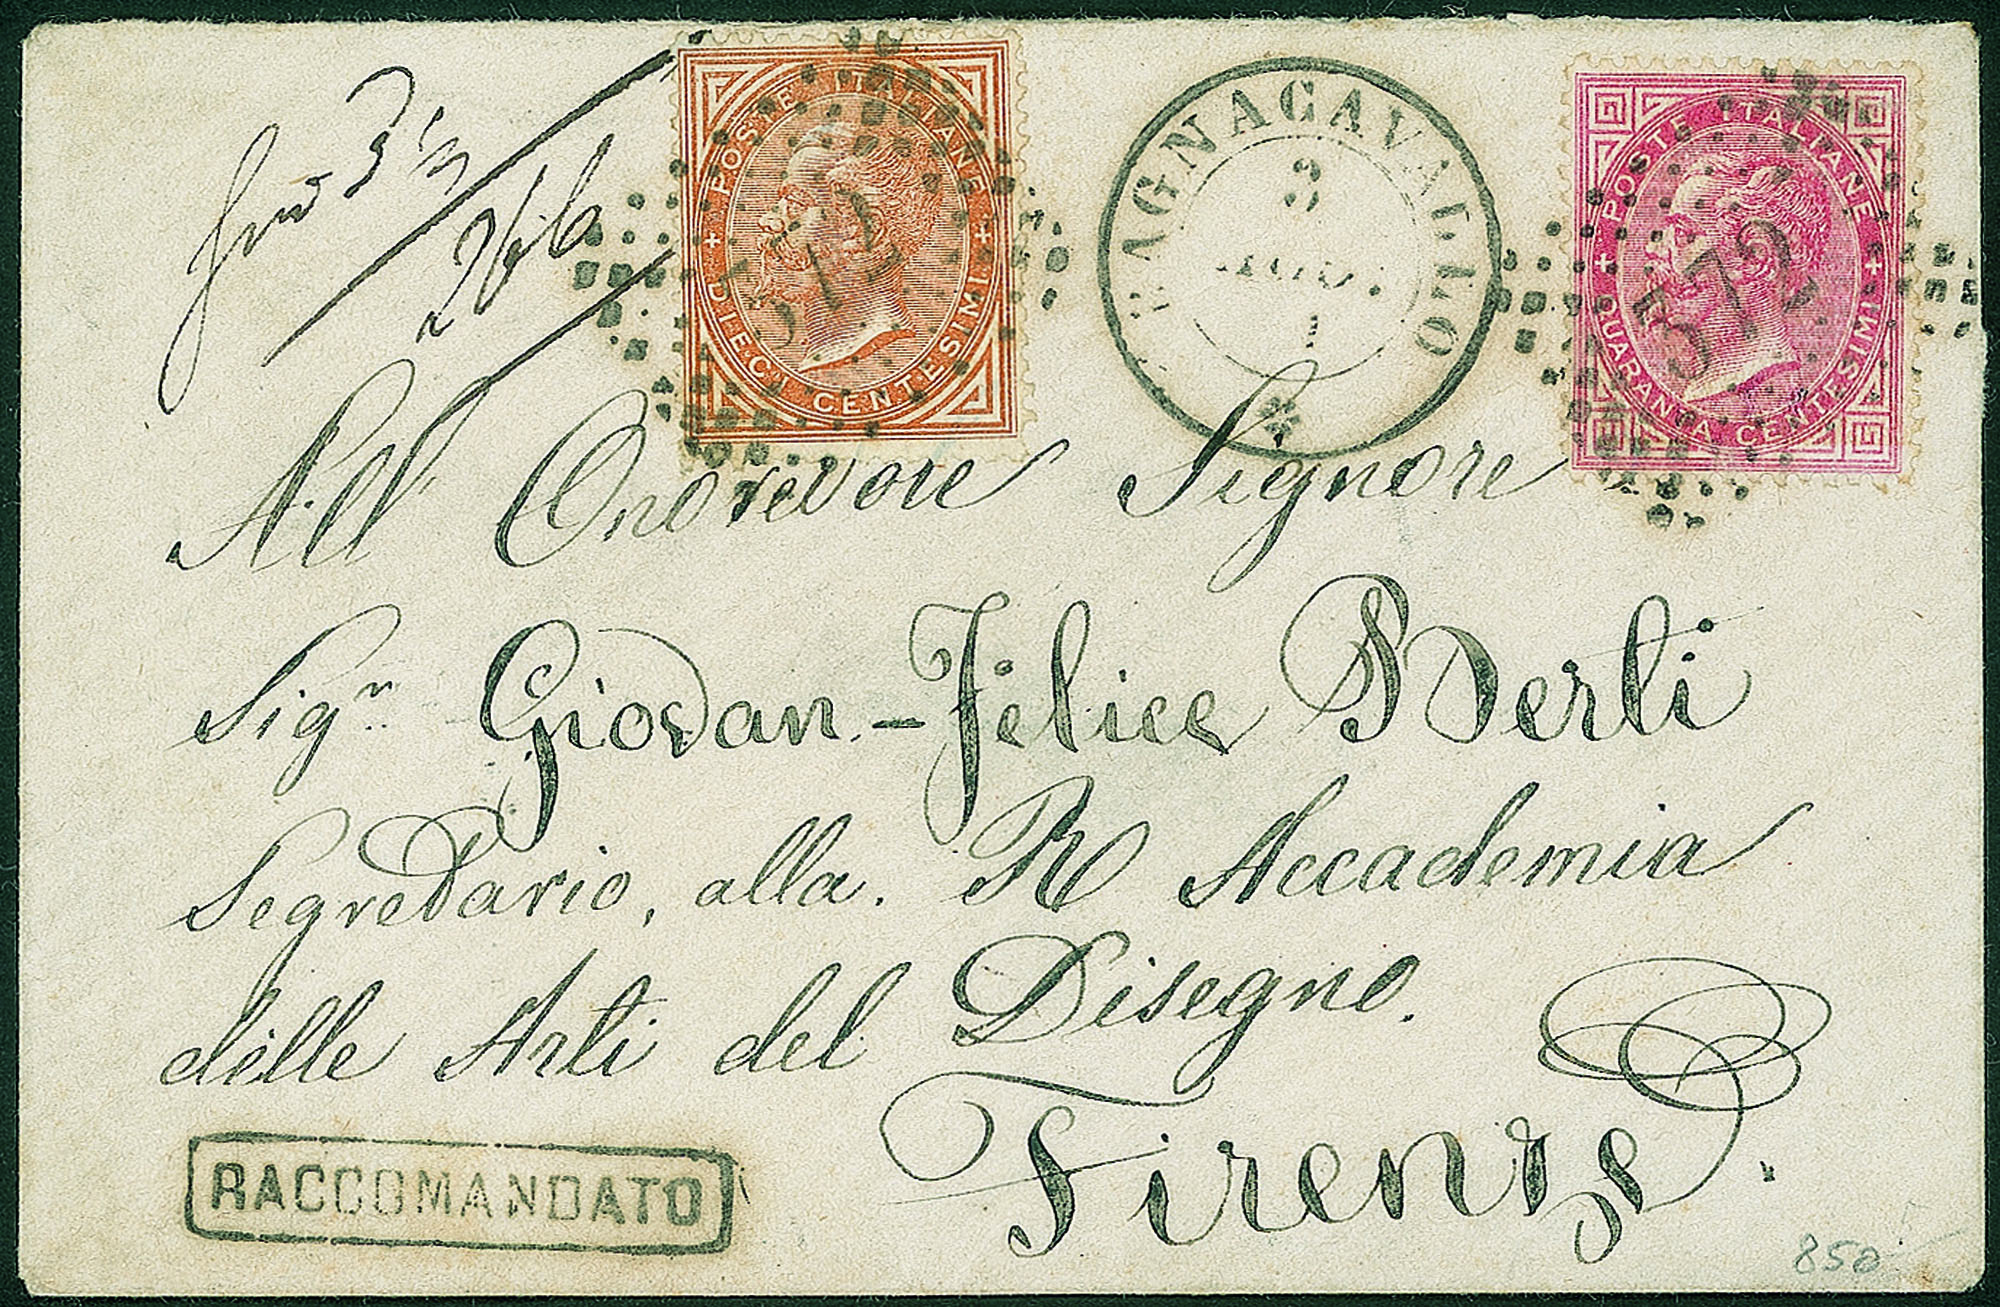 POSTE ITALIANE
DIECI CENTESIMI
572
BAGNACAVALLO
3
POSTE ITALIANE
QUARANTA CENTESIMI
572
All' Onorevole Signore
Sigr Giovan.-Felice Berti
Segretario, alla. R Accademia
delle Arti del Disegno.
Firenze.
RACCOMANDATO
850